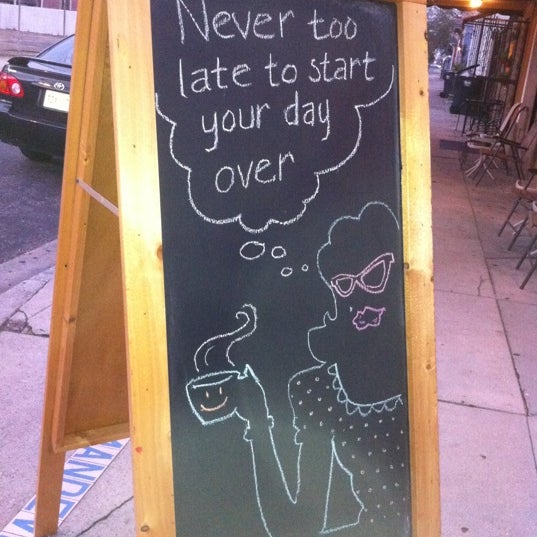 Never too
late to start
your day
over